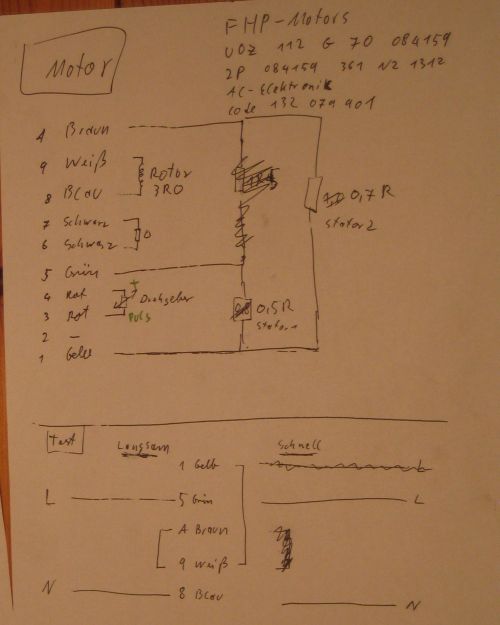 FHP-Motors
Motor
UOZ 112 G 70 084159
2P 084159 361 N2 1312
AC-Elektronik
Code 132 079 901
A Braun
9 Weiß
Rotor
8 Blau
3R0
0,7 R
7 Schwarz
Stator 2
6 Schwarz
0
5 Grün
4 Rot
+
Drehgeber
3 Rot
Puls
0,5R
2 -
Stator 1
1 Gelb
Test
Langsam
Schnell
1 Gelb
L
L
5 Grün
L
A Braun
9 Weiß
N
8 Blau
N